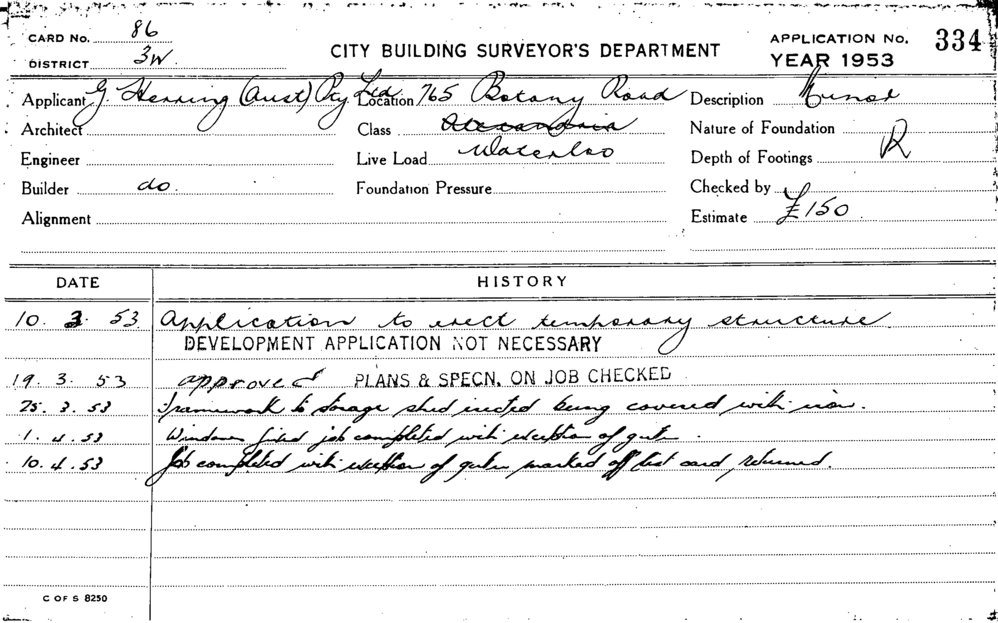 CARD No. 86
DISTRICT 3W.
CITY BUILDING SURVEYOR'S DEPARTMENT
APPLICATION No. 334
YEAR 1953
Applicant G. Herring (Aust) Pty Ltd Location 765 Botany Road Description Minor
Architect Class Alexandria Nature of Foundation R
Engineer Live Load Waterloo Depth of Footings
Builder do. Foundation Pressure Checked by
Alignment Estimate £150
DATE HISTORY
10. 3. 53 Application to erect temporary structure
DEVELOPMENT APPLICATION NOT NECESSARY
19. 3. 53 approved PLANS & SPECN. ON JOB CHECKED
25. 3. 53 Framework to storage shed erected being covered with iron.
1. 4. 53 Windows fixed job completed with exception of gutter.
10. 4. 53 Job completed with exception of gutter marked off list card returned.
C OF S 8250